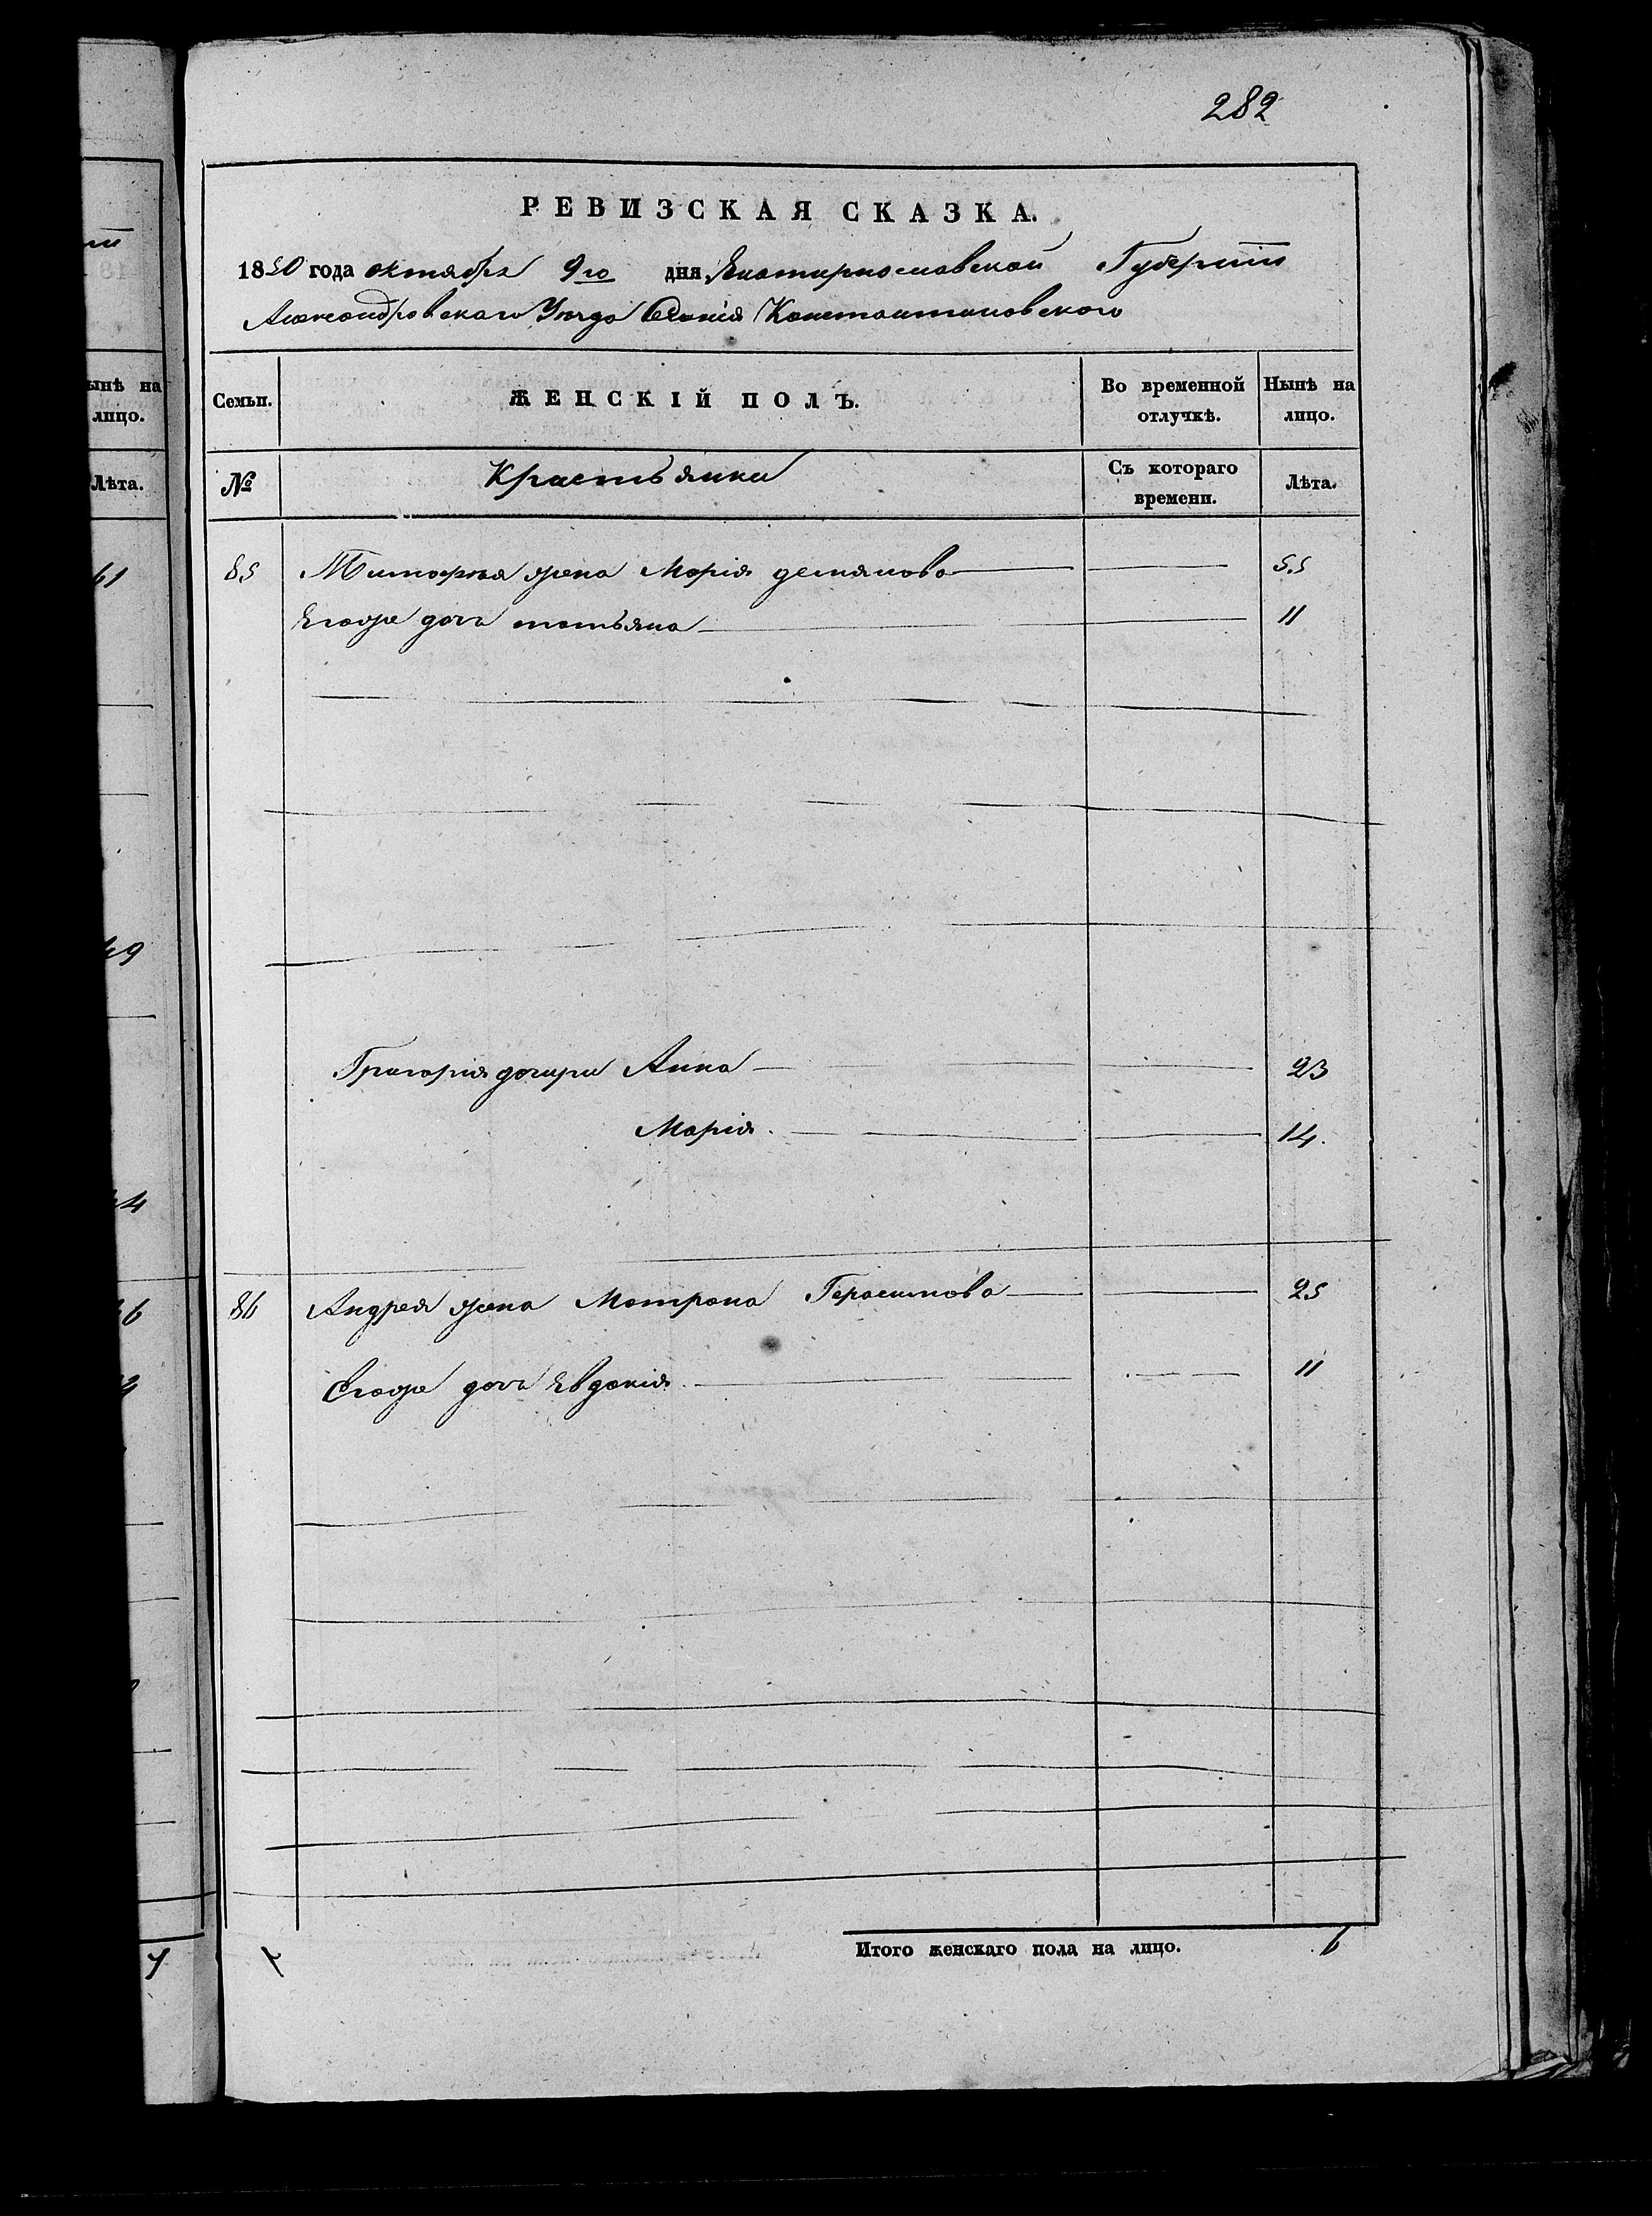 282
РЕВИЗСКАЯ СКАЗКА.
1850 года октября 9го дня Екатиринославской Губернiи
Александровскаго Уезда Селенiя Константиновского
Семьи. ЖЕНСКІЙ ПОЛЪ. Во временной отлучкѣ. Нынѣ на лицо.
№ Крастьянки Съ котораго времени. Лѣта.
85 Тимофея жена Марiя демянова 55
Егоже дочь татьяна 11
Григорiя дочири Анна 23
Марiя. 14.
86 Андрея жена Матрона Герасимова 25
Егоже дочь Евдокiя. 11
Итого женскаго пола на лицо. 6
ынѣ на
лицо.
Лѣта.
61
49